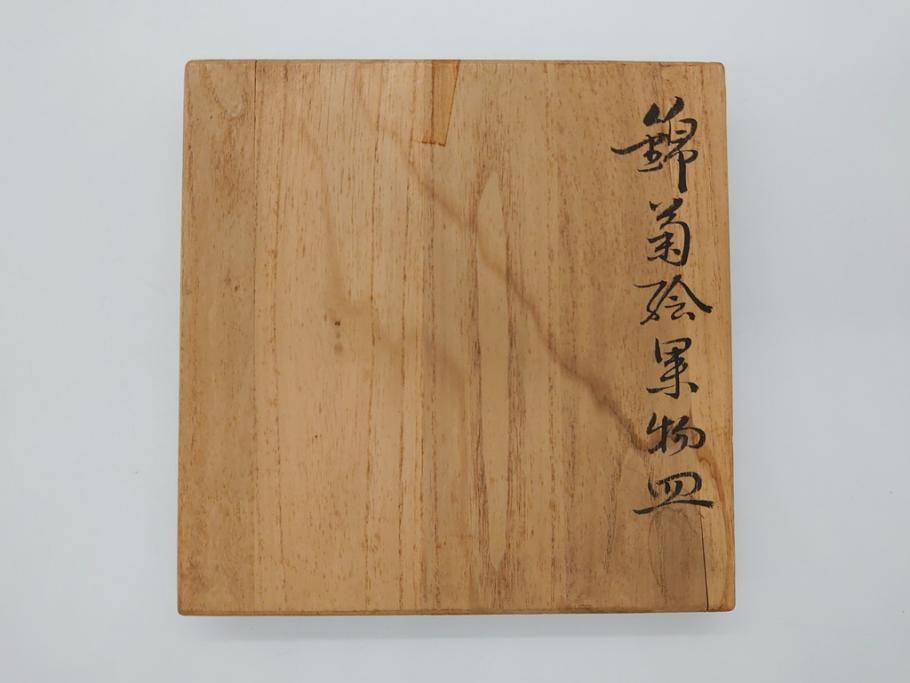 錦菊絵果物皿